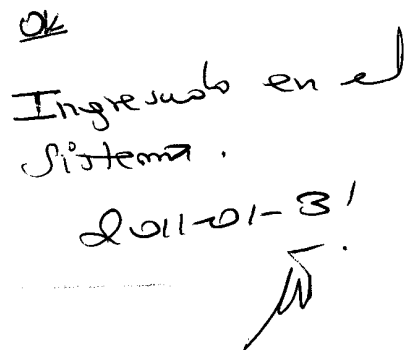 OK
Ingresado en el
Sistema.
2011-01-31